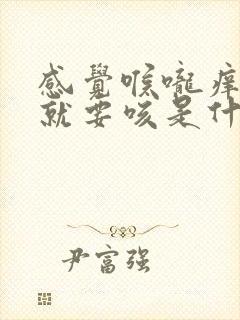 感覺喉嚨痒
就要咳是什
尹富强